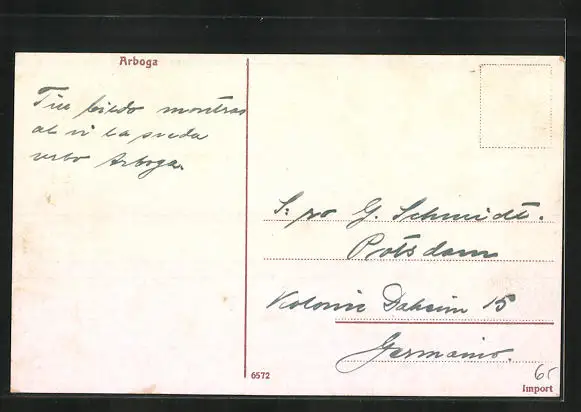 Arboga
Tiu bildo montras
al vi la sveda
urbo Arboga.
S: ro G. Schmidt.
Potsdam
Kolonie Daheim 15
Germanio.
6572
65
Import